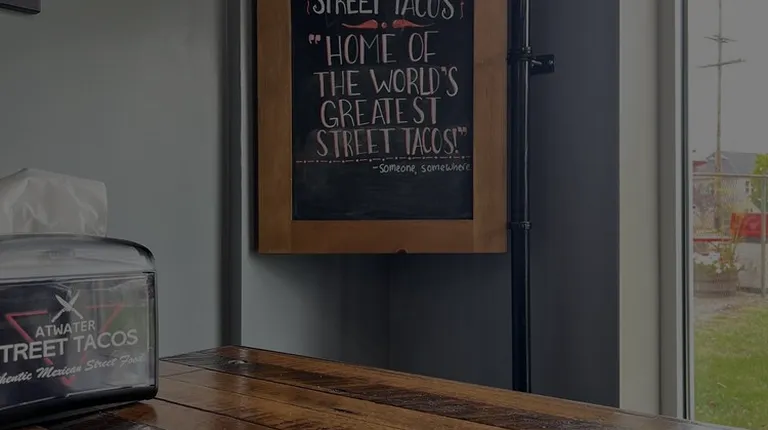 STREET TACOS
"HOME OF
THE WORLD'S
GREATEST
STREET TACOS!"
-someone, somewhere
ATWATER
TREET TACOS
hentic Mexican Street Food